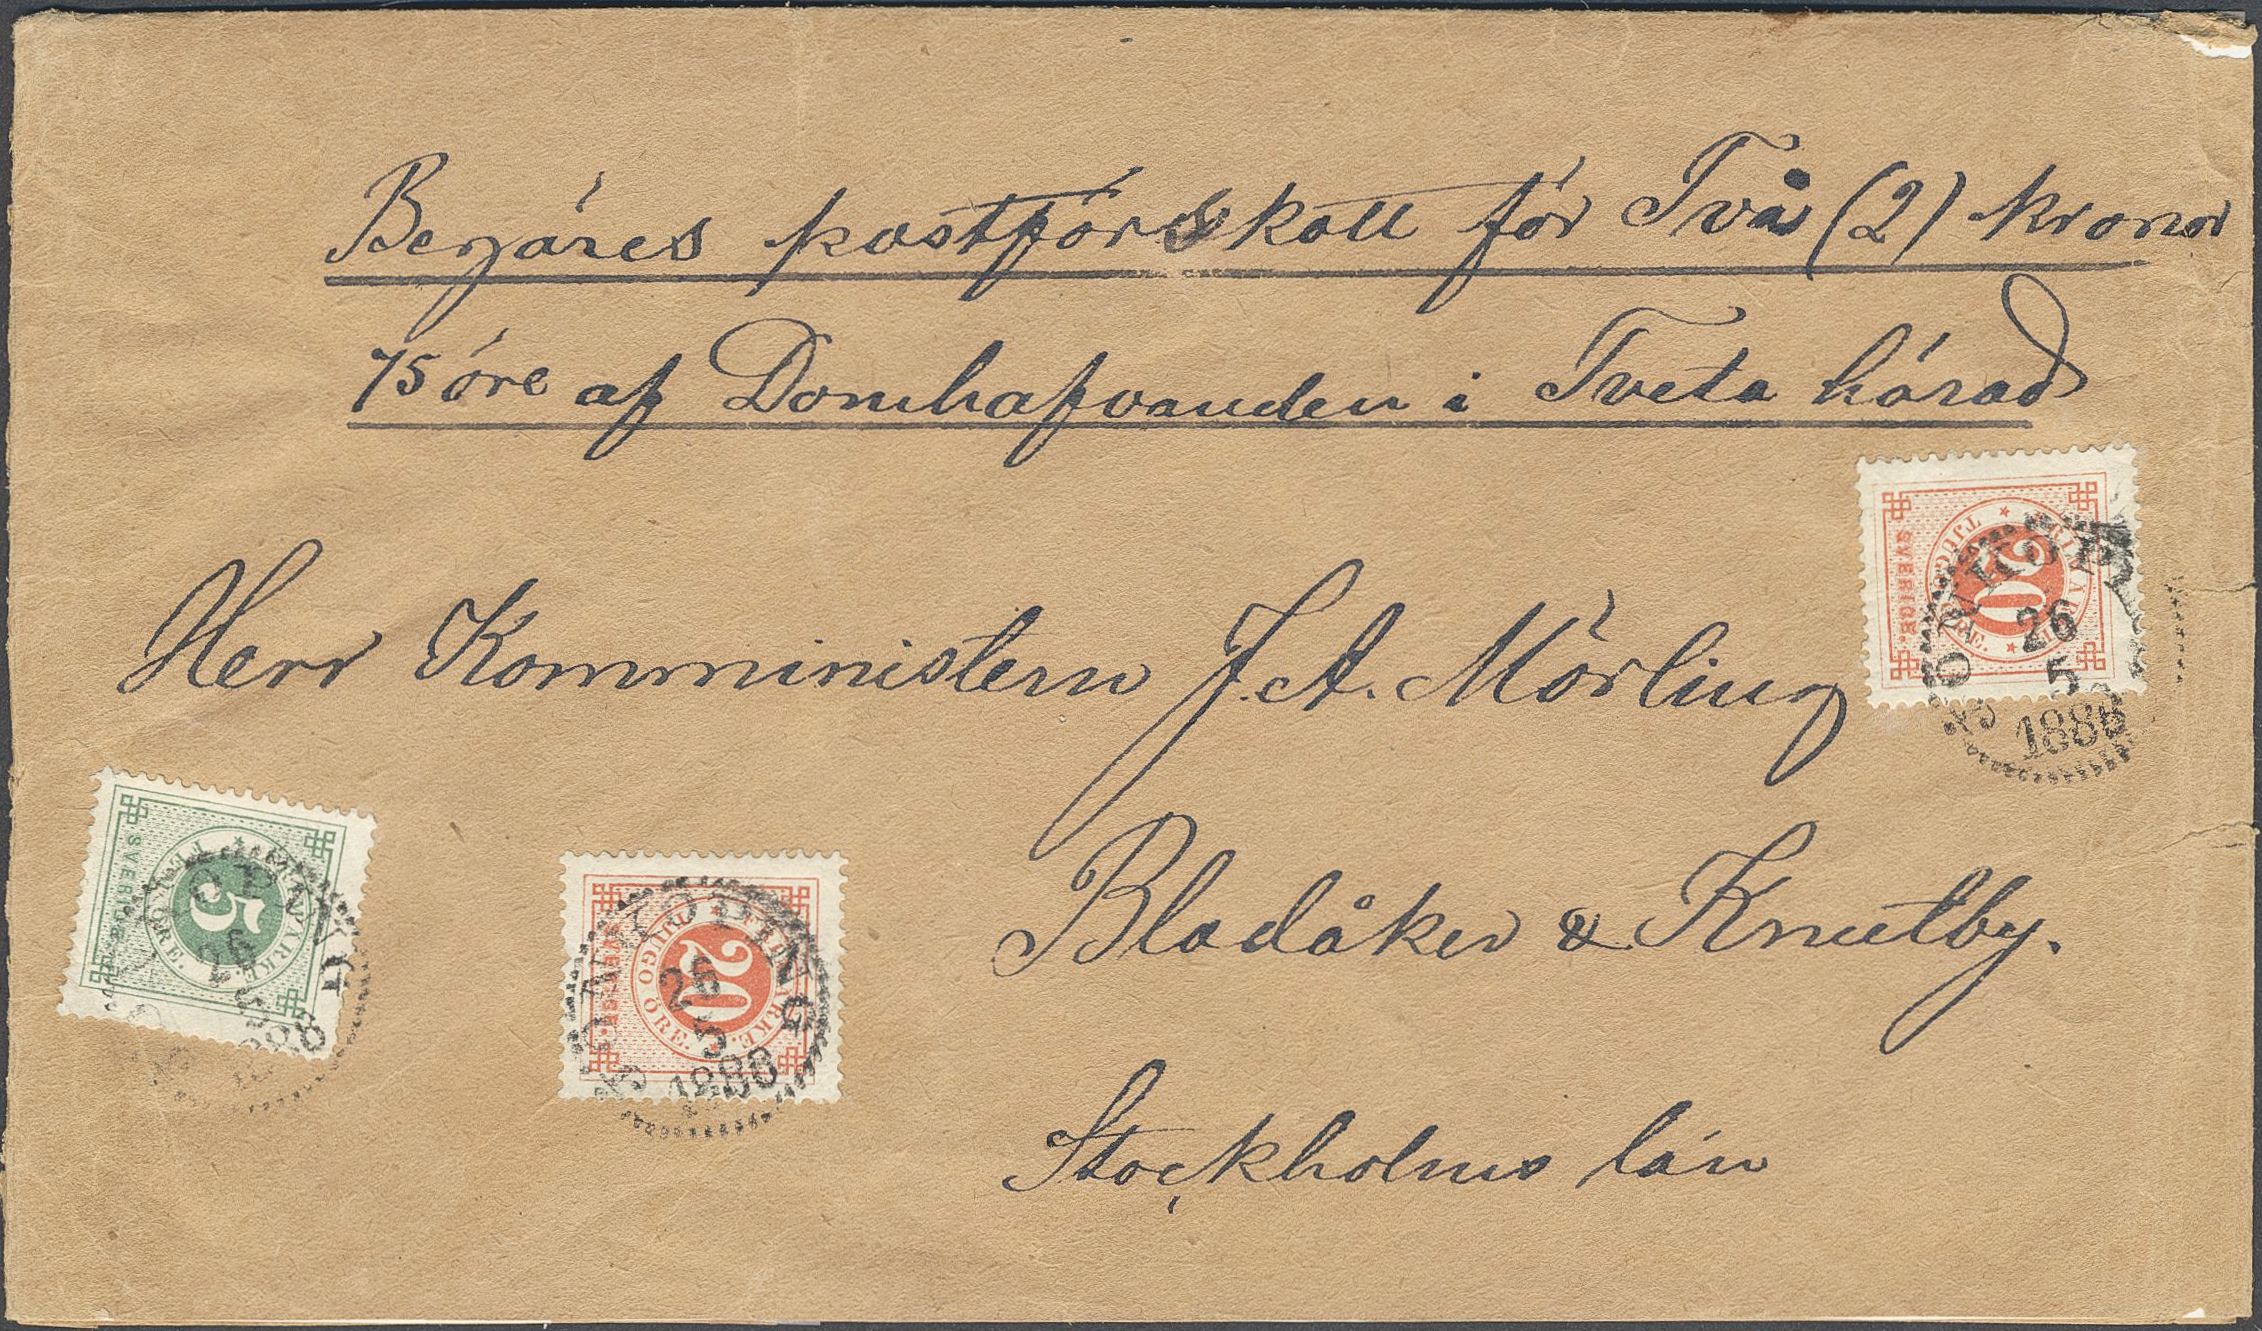 Begäres postförskott för Två (2) kronor
75 öre af Domhafvanden i Tveta härad
Herr Komministern J. A. Mörling
Bladåker & Knutby.
Stockholms län
SVERIGE
TJUGO ÖRE
20
FRIMÄRKE
26
5
188
SVERIGE
FEM ÖRE.
5
FRIMÄRKE
26
5
SVERIGE
TJUGO ÖRE.
20
FRIMÄRKE.
JÖNKÖPING
26
5
1886